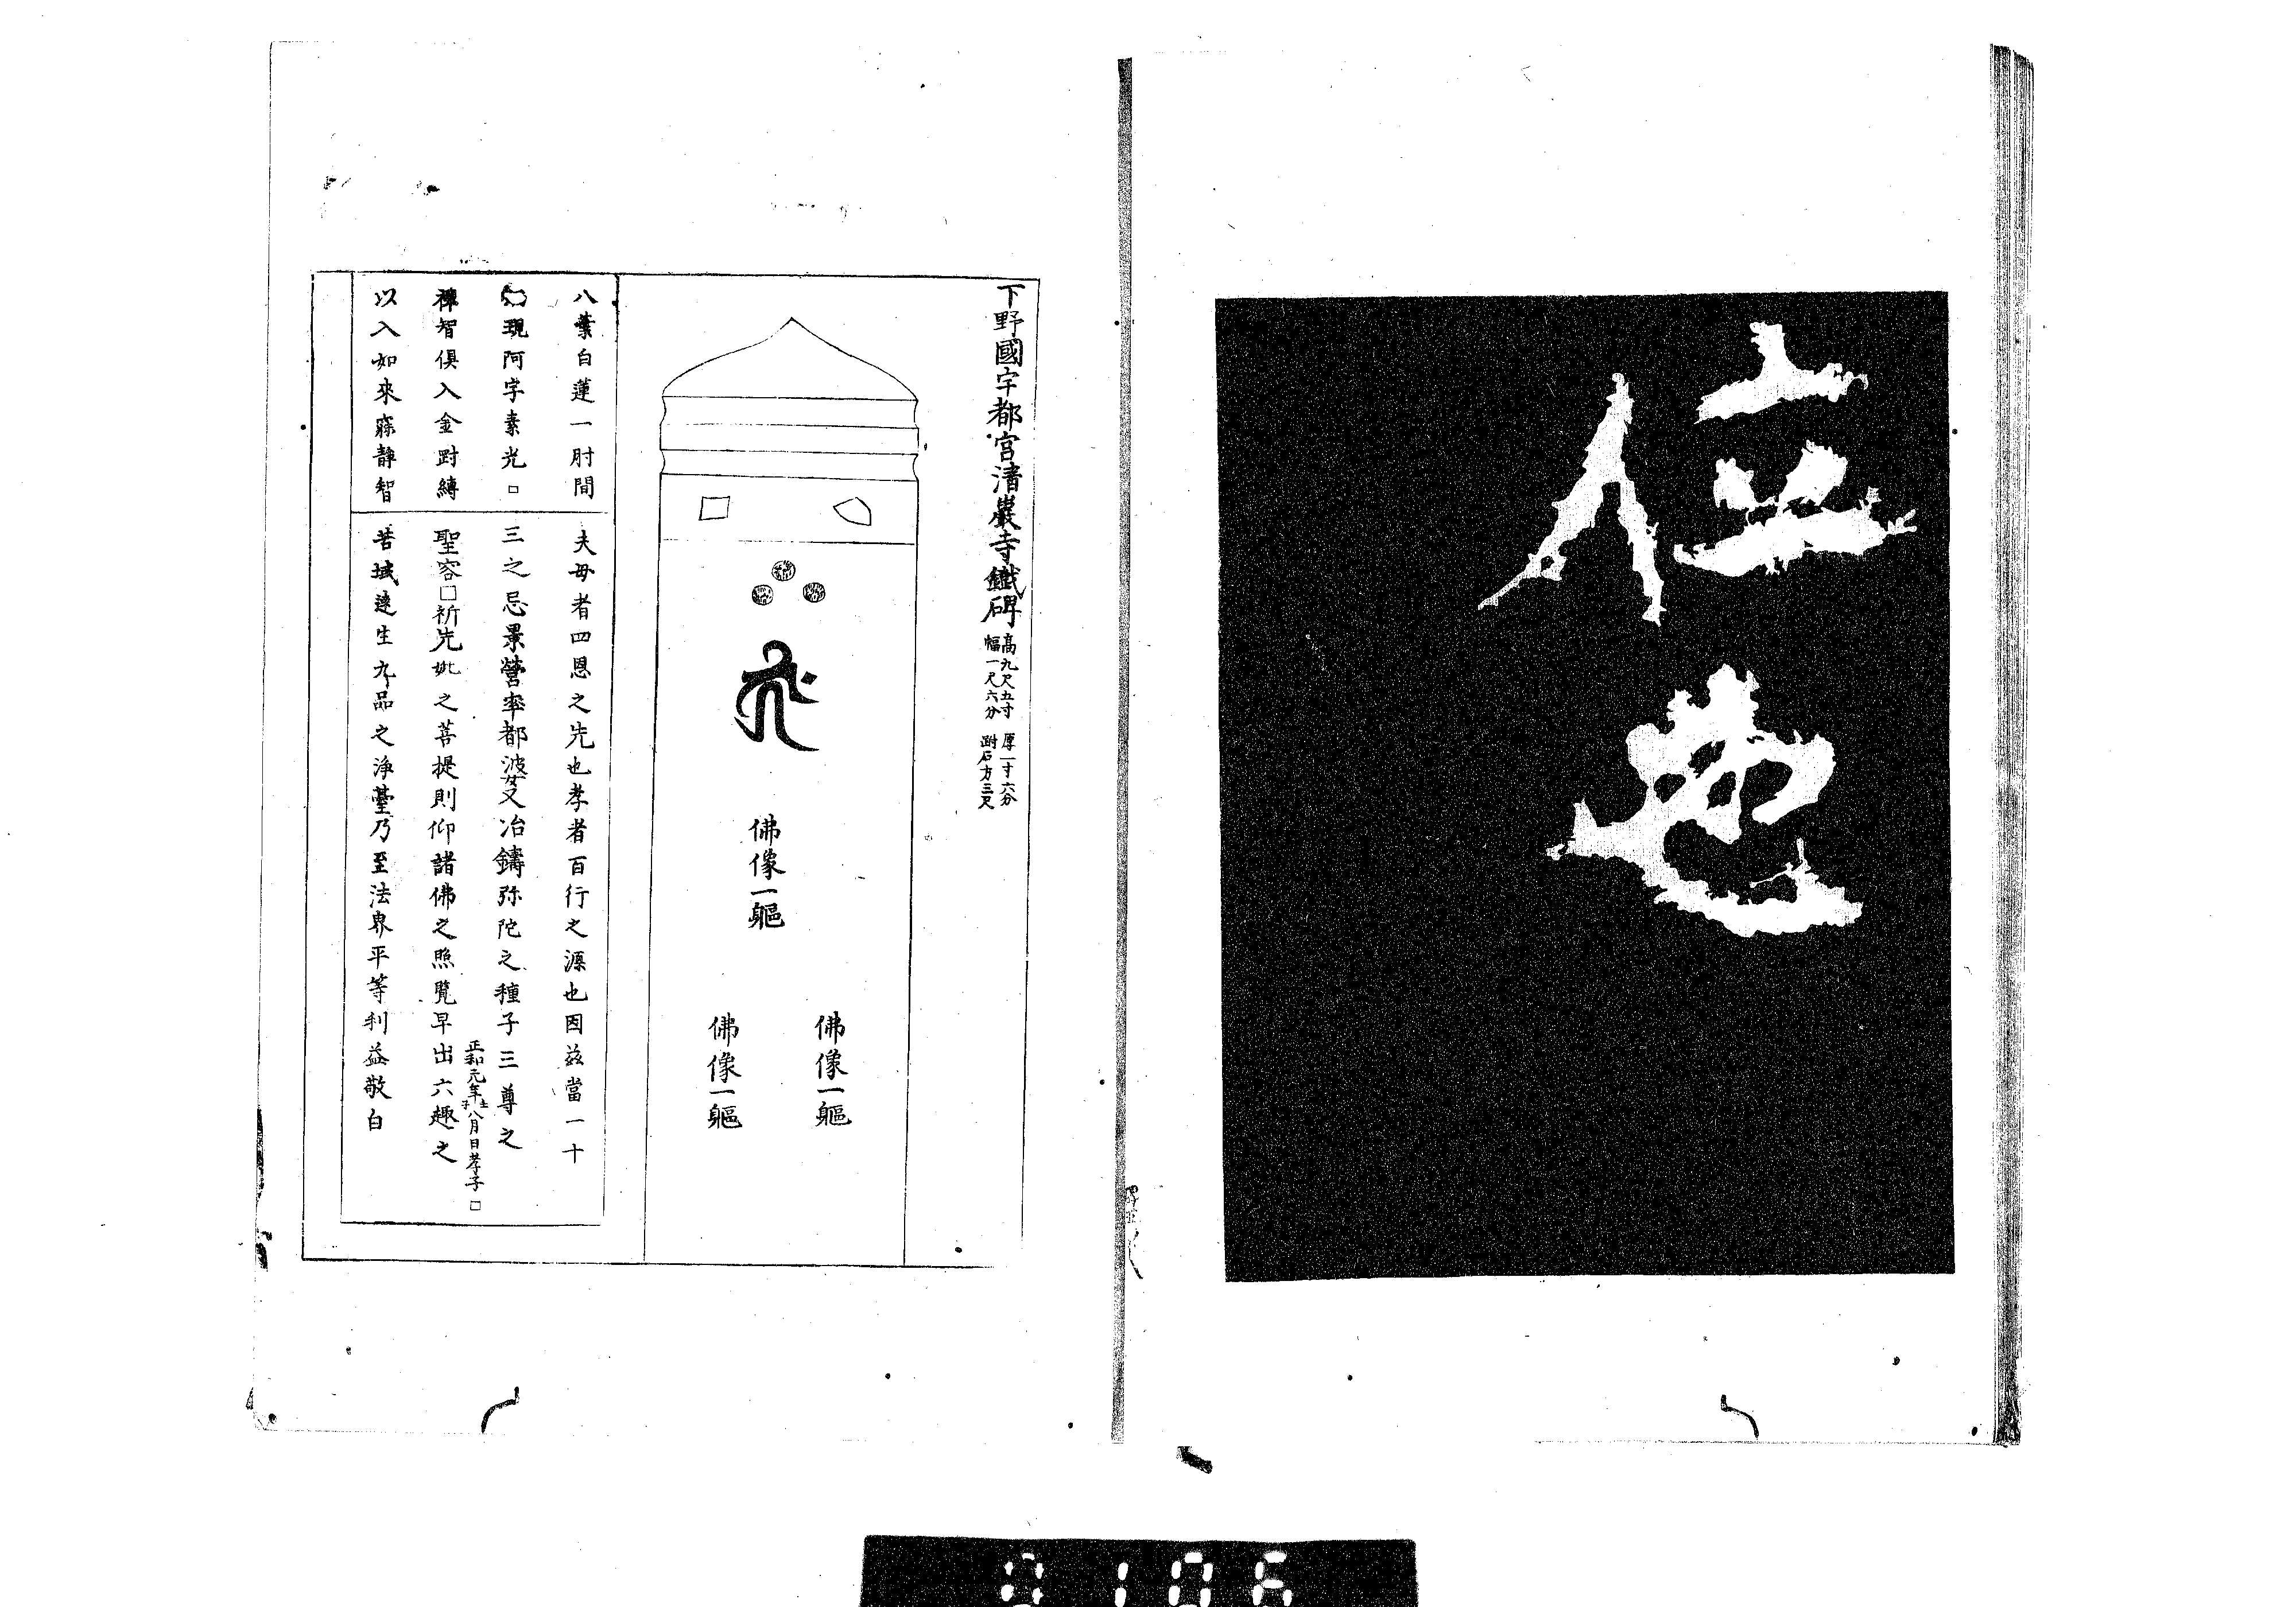 下野國宇都宮清巖寺鐵碑
高九尺五寸
幅一尺六分
厚一寸六分
趺石方三尺
佛像一軀
佛像一軀
佛像一軀
八葉白蓮一肘間
現阿字素光□
禅智俱入金剛縛
以入如來寂静智
夫母者四恩之先也孝者百行之源也因兹當一十
三之忌景營率都波又冶鑄弥陀之種子三尊之
聖容□祈先妣之菩提則仰諸佛之照覧早出六趣之
苦域速生九品之浄臺乃至法界平等利益敬白
正和元年壬子八月日孝子□